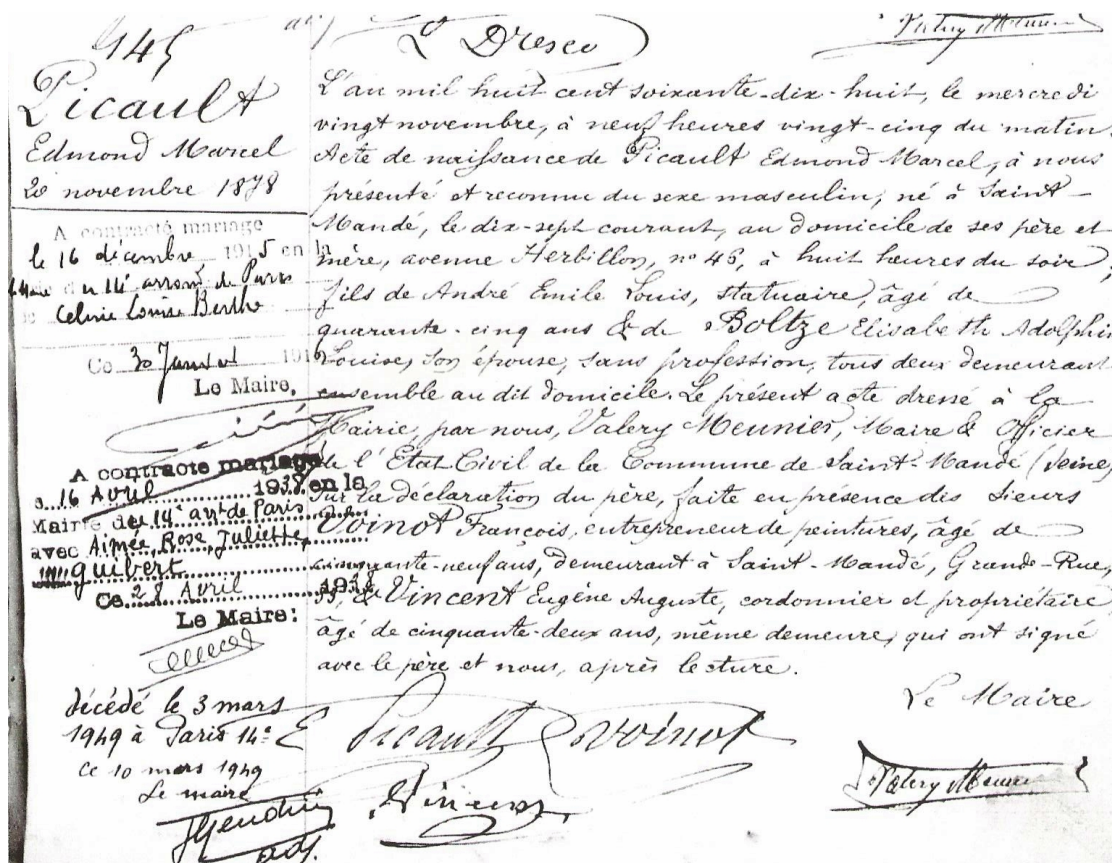 145
Picault
Edmond Marcel
20 novembre 1878
A contracté mariage
le 16 décembre 1915 en la
Mairie du 14e arrondt de Paris
Celinie Louise Berthe
Ce 30 Janvier 191
Le Maire,
A contracté mariage
16 Avril 1938 en la
Mairie du 14e arrt de Paris
avec Aimée, Rose, Juliette,
Guibert
Ce 28 Avril 1938
Le Maire:
décédé le 3 mars
1949 à Paris 14e
Ce 10 mars 1949
Le maire
adj.
L Dresco
Valery Meunier
L'an mil huit cent soixante-dix-huit, le mercredi
vingt novembre, à neuf heures vingt-cinq du matin.
Acte de naissance de Picault Edmond Marcel, à nous
présenté et reconnu du sexe masculin, né à Saint-
Mandé, le dix-sept courant, au domicile de ses père et
mère, avenue Herbillon, no 46, à huit heures du soir;
fils de André Emile Louis, statuaire, âgé de
quarante-cinq ans & de Boltze Elisabeth Adolphine
Louise, son épouse, sans profession, tous deux demeurant
ensemble au dit domicile. Le présent acte dressé à la
Mairie, par nous, Valery Meunier, Maire & Officier
de l'Etat Civil de la Commune de Saint-Mandé (Seine)
Sur la déclaration du père, faite en présence des sieurs
Voinot François, entrepreneur de peintures, âgé de
cinquante-neuf ans, demeurant à Saint-Mandé, Grande-Rue,
& Vincent Eugène Auguste, cordonnier et propriétaire,
âgé de cinquante-deux ans, même demeure, qui ont signé
avec le père et nous, après lecture.
Le Maire
E Picault Voinot
Vincent
Valery Meunier